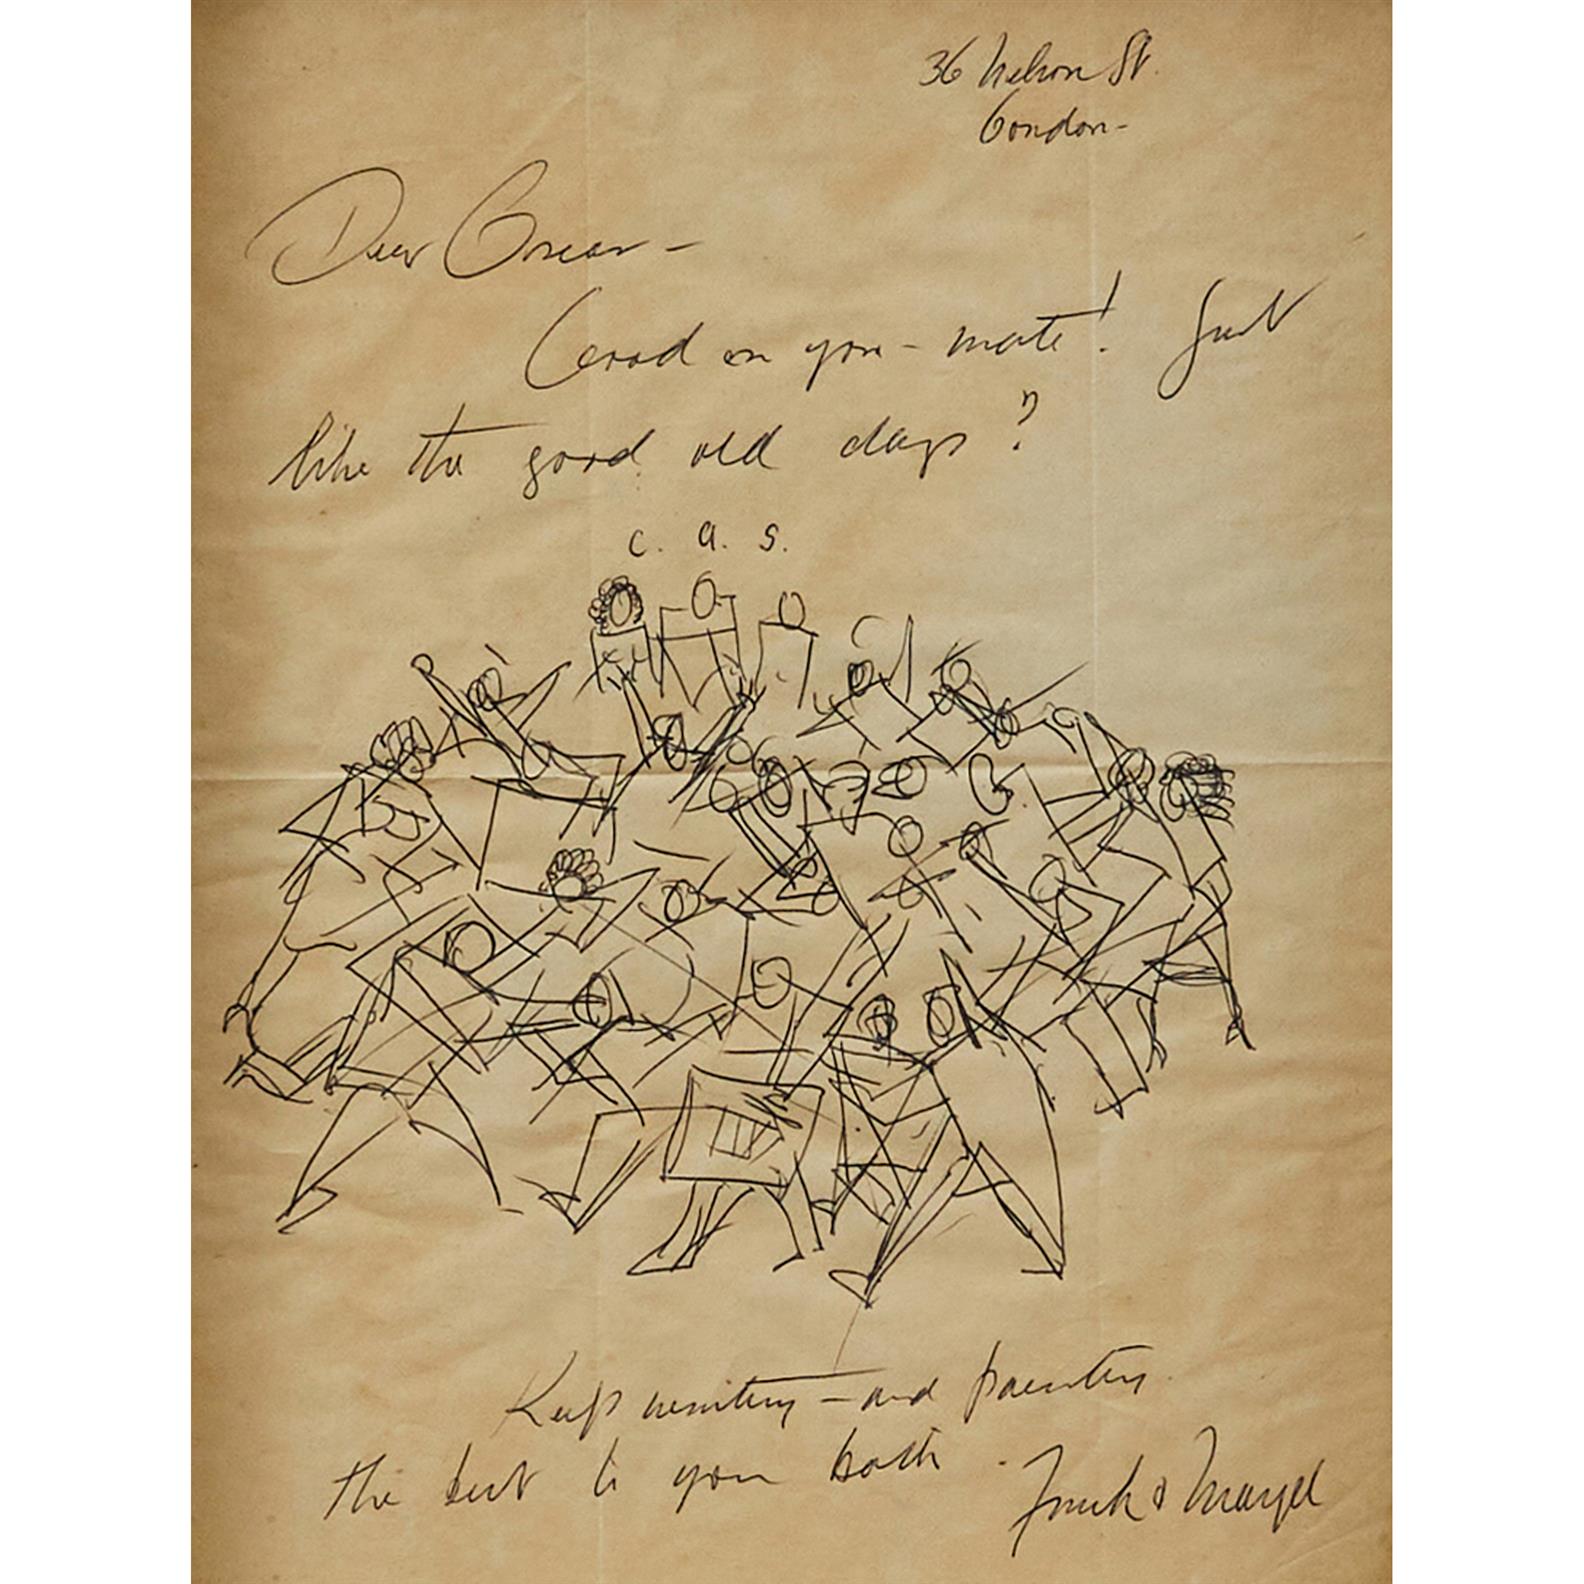 36 Nelson St.
London -
Dear Oscar -
Good on you - mate! Just
like the good old days?
C. a. S.
Keep writing - and painting
the best to you both.
Frank & Margel